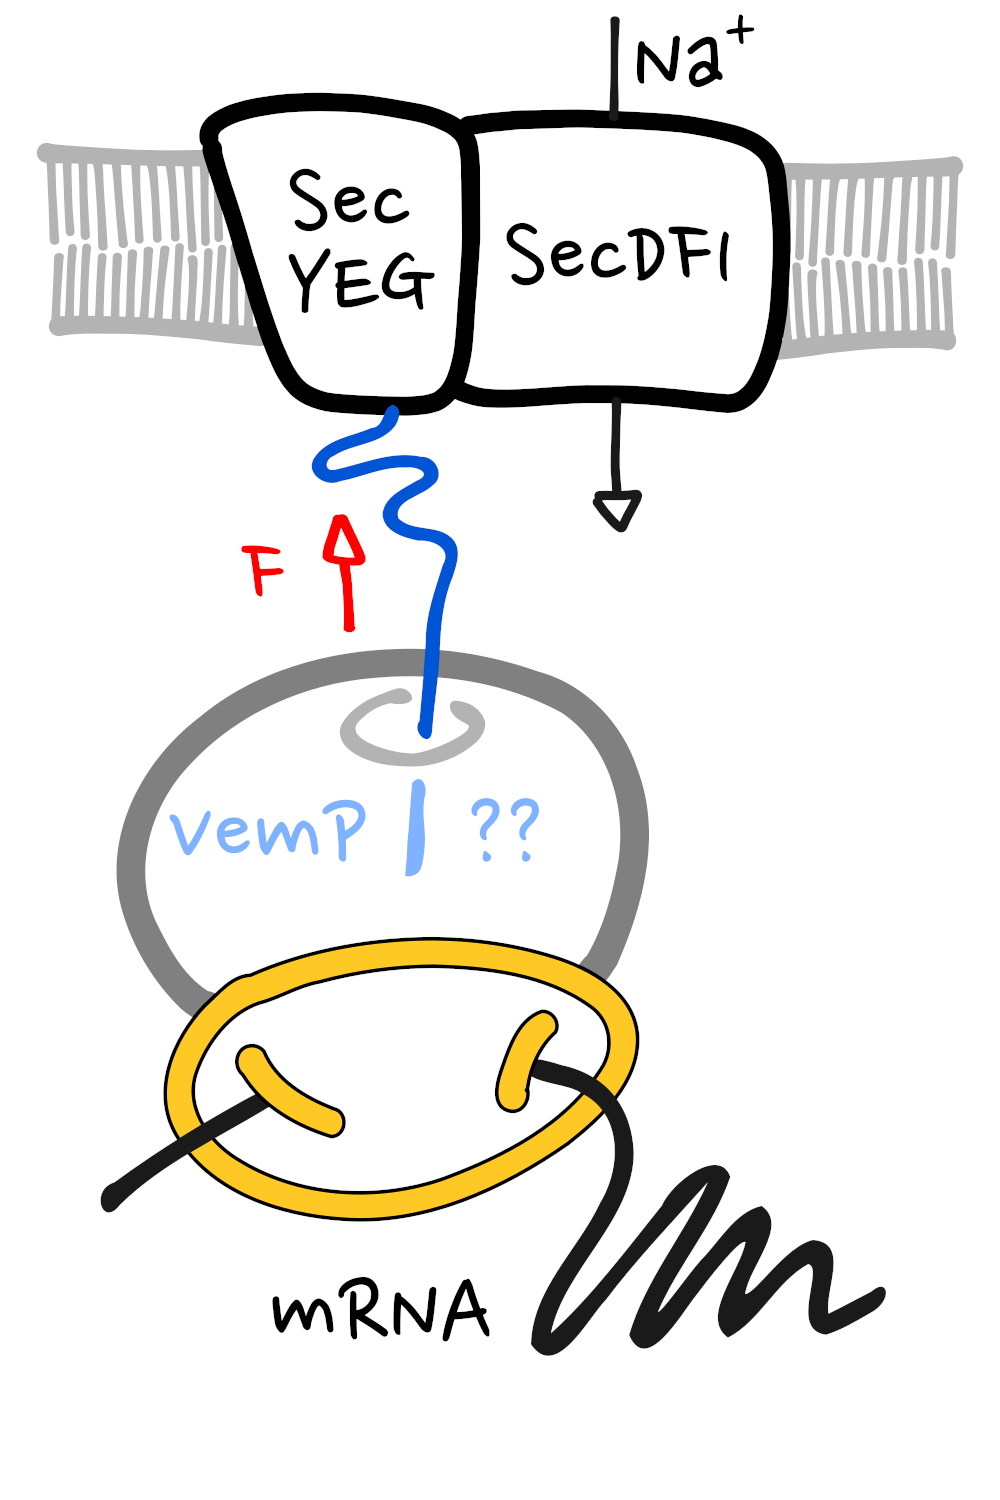 Na⁺
Sec
YEG
SecDF1
F
VemP
??
mRNA